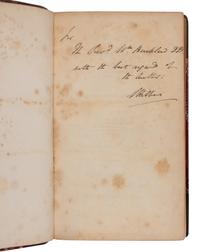 For
The Revd Wm Buckland DD
with the best regards of
the Author.